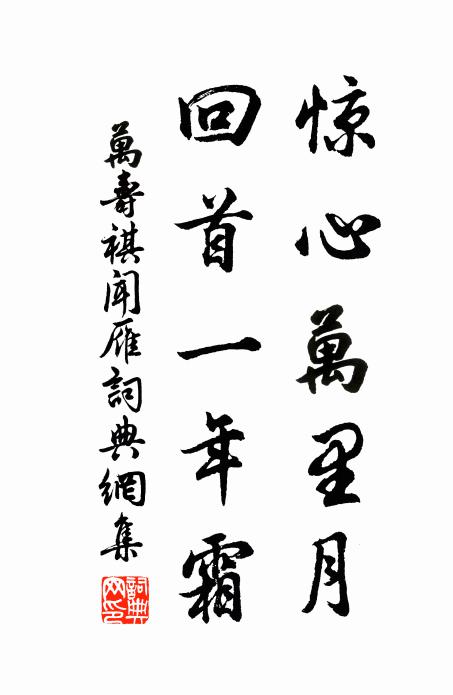 惊心萬里月
回首一年霜
萬壽祺聞雁詞典網集
詞典
網印